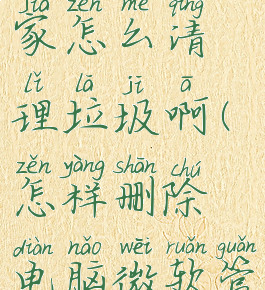 jiā zěn me qīng
家怎么清
lǐ lā jī ā
理垃圾啊(
zěn yàng shān chú
怎样删除
diàn nǎo wēi ruǎn guǎn
电脑微软管